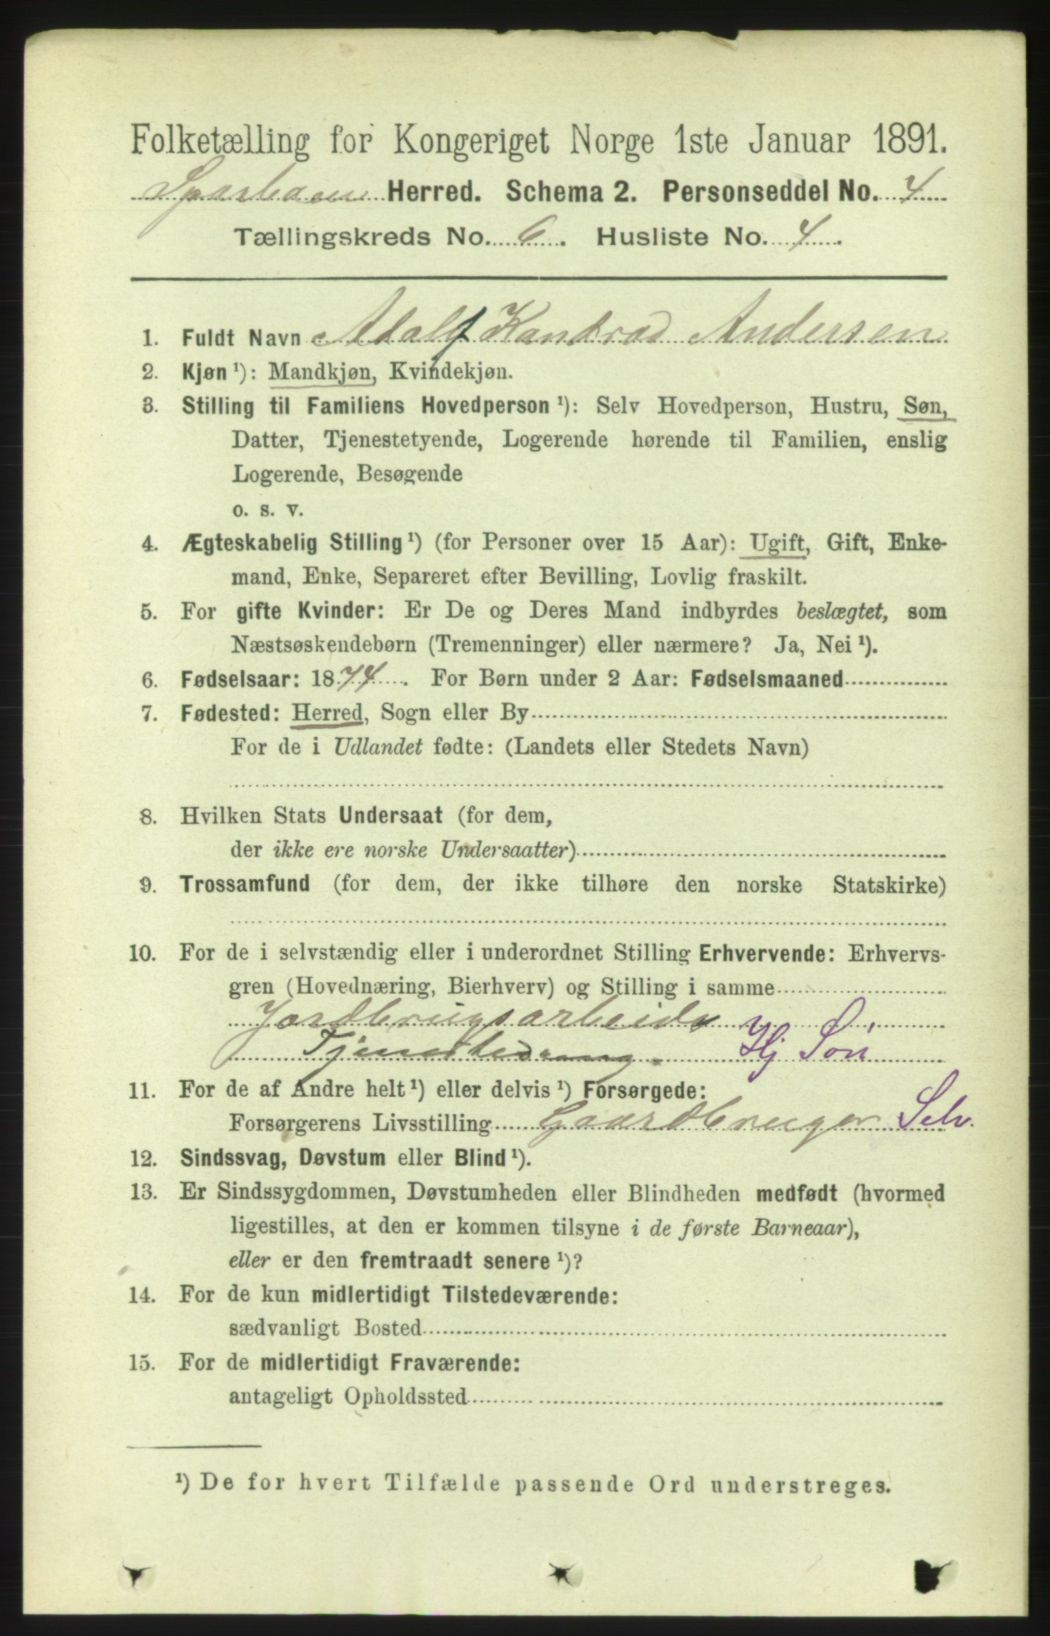 Folketælling for Kongeriget Norge 1ste Januar 1891.
Sparbuen Herred. Schema 2. Personseddel No. 4
Tællingskreds No. 6. Husliste No. 4.
1. Fuldt Navn Adalf Kandrad Andersen
2. Kjøn ¹): Mandkjøn, Kvindekjøn.
3. Stilling til Familiens Hovedperson ¹): Selv Hovedperson, Hustru, Søn,
Datter, Tjenestetyende, Logerende hørende til Familien, enslig
Logerende, Besøgende
o. s. v.
4. Ægteskabelig Stilling ¹) (for Personer over 15 Aar): Ugift, Gift, Enke-
mand, Enke, Separeret efter Bevilling, Lovlig fraskilt.
5. For gifte Kvinder: Er De og Deres Mand indbyrdes beslægtet, som
Næstsøskendebørn (Tremenninger) eller nærmere? Ja, Nei ¹).
6. Fødselsaar: 1874. For Børn under 2 Aar: Fødselsmaaned
7. Fødested: Herred, Sogn eller By
For de i Udlandet fødte: (Landets eller Stedets Navn)
8. Hvilken Stats Undersaat (for dem,
der ikke ere norske Undersaatter)
9. Trossamfund (for dem, der ikke tilhøre den norske Statskirke)
10. For de i selvstændig eller i underordnet Stilling Erhvervende: Erhvervs-
gren (Hovednæring, Bierhverv) og Stilling i samme
Jordbrugsarbeide
Hj Søn
11. For de af Andre helt ¹) eller delvis ¹) Forsørgede:
Forsørgerens Livsstilling Gaardbruger Selv.
12. Sindssvag, Døvstum eller Blind ¹).
13. Er Sindssygdommen, Døvstumheden eller Blindheden medfødt (hvormed
ligestilles, at den er kommen tilsyne i de første Barneaar),
eller er den fremtraadt senere ¹)?
14. For de kun midlertidigt Tilstedeværende:
sædvanligt Bosted
15. For de midlertidigt Fraværende:
antageligt Opholdssted
¹) De for hvert Tilfælde passende Ord understreges.